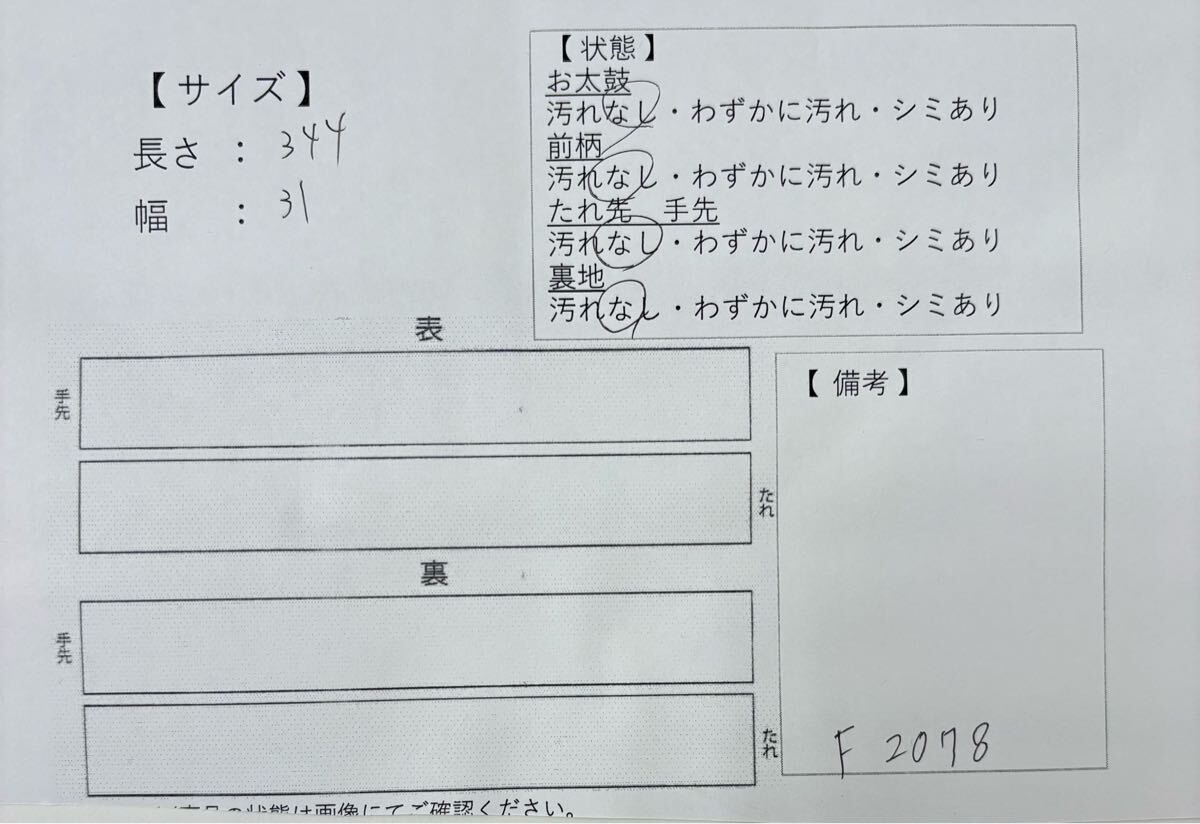 【 サイズ 】
長さ : 344
幅 : 31
【 状態 】
お太鼓
汚れなし・わずかに汚れ・シミあり
前柄
汚れなし・わずかに汚れ・シミあり
たれ先 手先
汚れなし・わずかに汚れ・シミあり
裏地
汚れなし・わずかに汚れ・シミあり
表
手先
たれ
裏
手先
たれ
【 備考 】
F 2078
の状態は画像にてご確認ください。